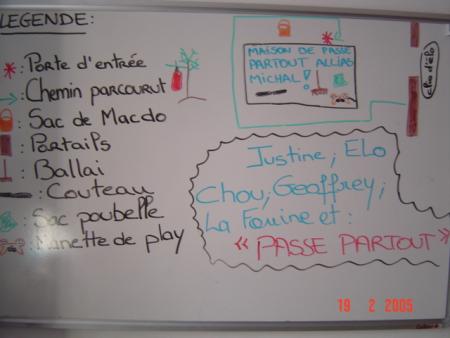 LEGENDE:
: Porte d'entrée
: Chemin parcourut
: Sac de Macdo
: Portails
: Ballai
: Couteau
: Sac poubelle
: Manette de play
MAISON DE PASSE
PARTOUT ALLIAS
MICHAL!
Justine, ELO
Chou, Geoffrey,
La Fouine et :
« PASSE PARTOUT »
19 2 2005